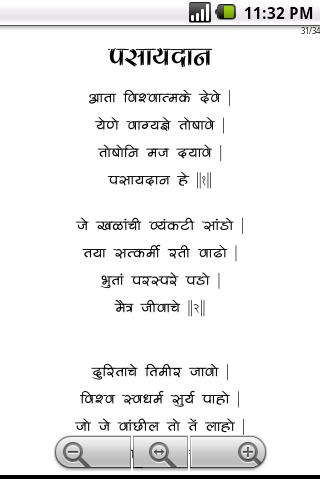 11:32 PM
31/34
पसायदान
आता विश्वात्मके देवे |
येणे वाग्यज्ञे तोषावे |
तोषोनि मज द्यावे |
पसायदान हे ||१||
जे खळांची व्यंकटी सांडो |
तया सत्कर्मी रती वाढो |
भुतां परस्परे पडो |
मैत्र जीवाचे ||२||
दुरिताचे तिमीर जावो |
विश्व स्वधर्म सुर्य पाहो |
जो जे वांछील तो तें लाहो |